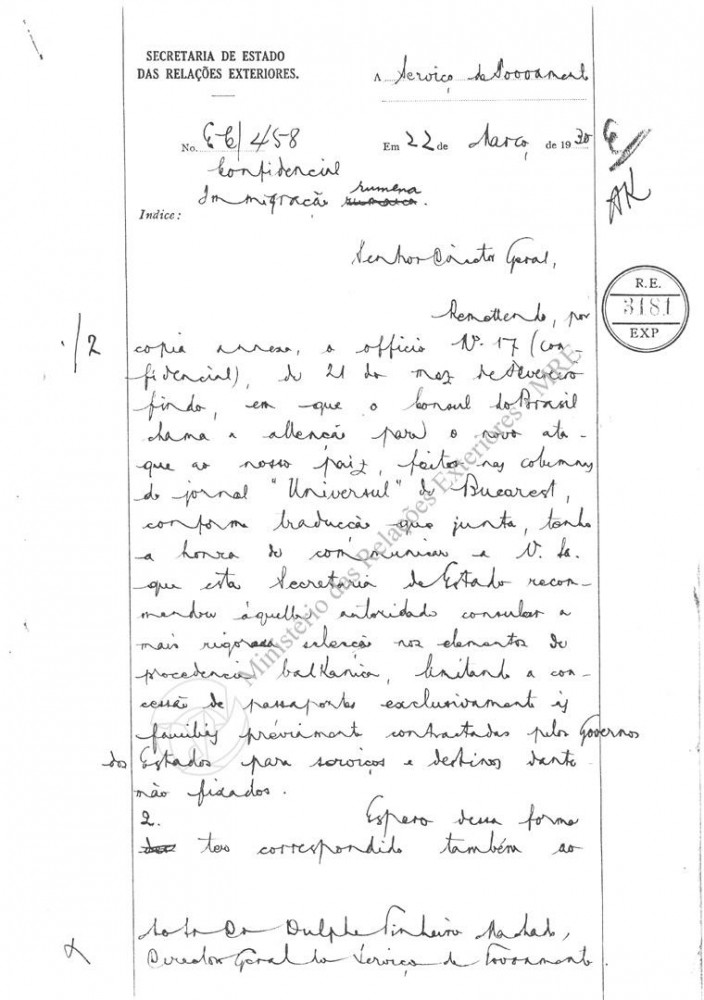 SECRETARIA DE ESTADO
DAS RELAÇÕES EXTERIORES.
A Serviço de Povoamento
No. EC/458
Em 22 de Março de 1930
Confidencial
rumena
Indice: Immigração
Senhor Director Geral,
R.E.
3181
EXP
Remettendo, por
1/2
copia annexa, o officio Nº 17 (con-
fidencial), de 21 do mez de Fevereiro
findo, em que o Consul do Brasil
chama a attenção para o novo ata-
que ao nosso paiz, feito nas columnas
do jornal "Universul" de Bucarest,
conforme traducção que junta, tenho
a honra de communicar a V. Sa.
que esta Secretaria de Estado recom-
mendou áquella autoridade consular a
mais rigorosa selecção nos elementos de
procedencia balkanica, limitando a con-
cessão de passaportes exclusivamente ás
familias préviamente contractadas pelos Governos
dos Estados para serviços e destinos dante-
mão fixados.
2. Espero dessa forma
ter correspondido também ao
Ao Sr Dr Dulphe Pinheiro Machado,
Director Geral do Serviço de Povoamento.
Ministério das Relações Exteriores - MRE